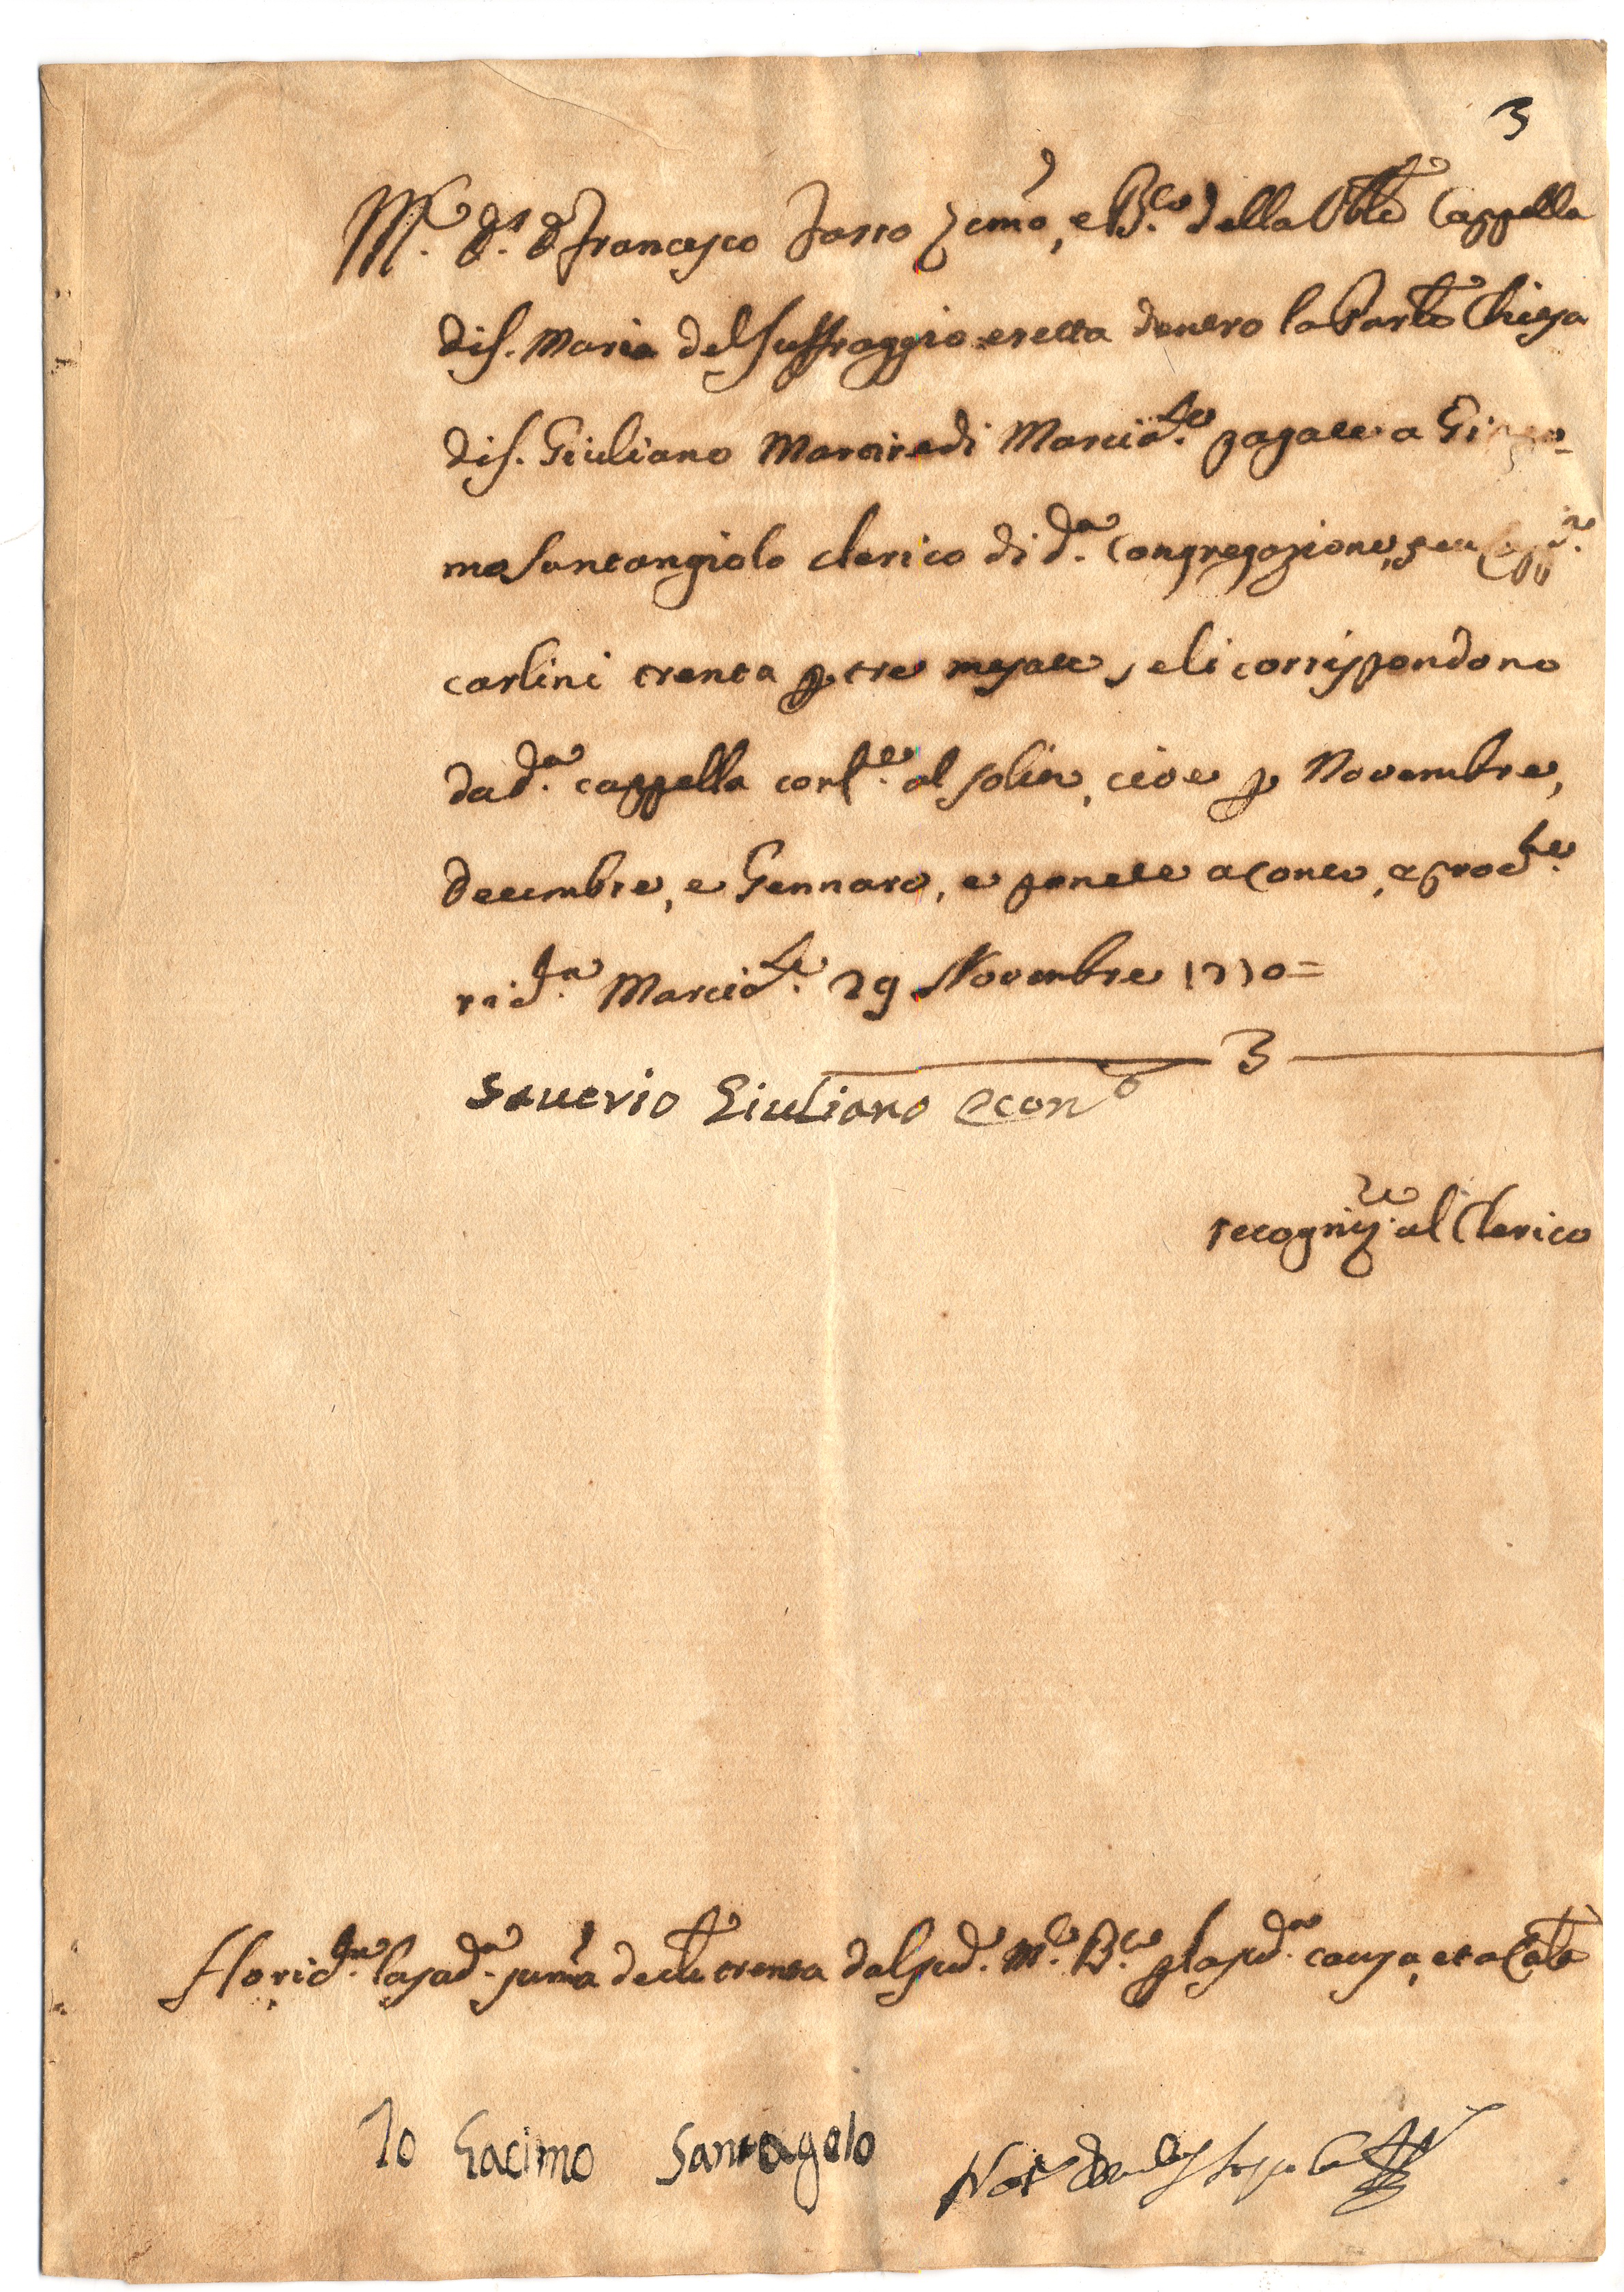 3
M.co Sr. D. Francesco Jasso econo, e B.co della Ven.le Cappella
di S. Maria del Suffraggio eretta dentro la Parle Chiesa
di S. Giuliano Martire di Marcia.se pagate a
mo Santangiolo clerico di d.a Congregazione, seu Capp.
carlini trenta p tre mesate, se li corrispondono
da d.a cappella conf.e al solito, cioe p Novembre,
Decembre, e Gennaro, e ponete a conto,
Marcia.se 29 Novembre 1770=
3
Saverio Giuliano Econo
recogniz.ne al Clerico
la sad.a summa de trenta dal sud.o M.co B.co p la sud.a causa, et a Cautla
Io Gacimo Santagelo